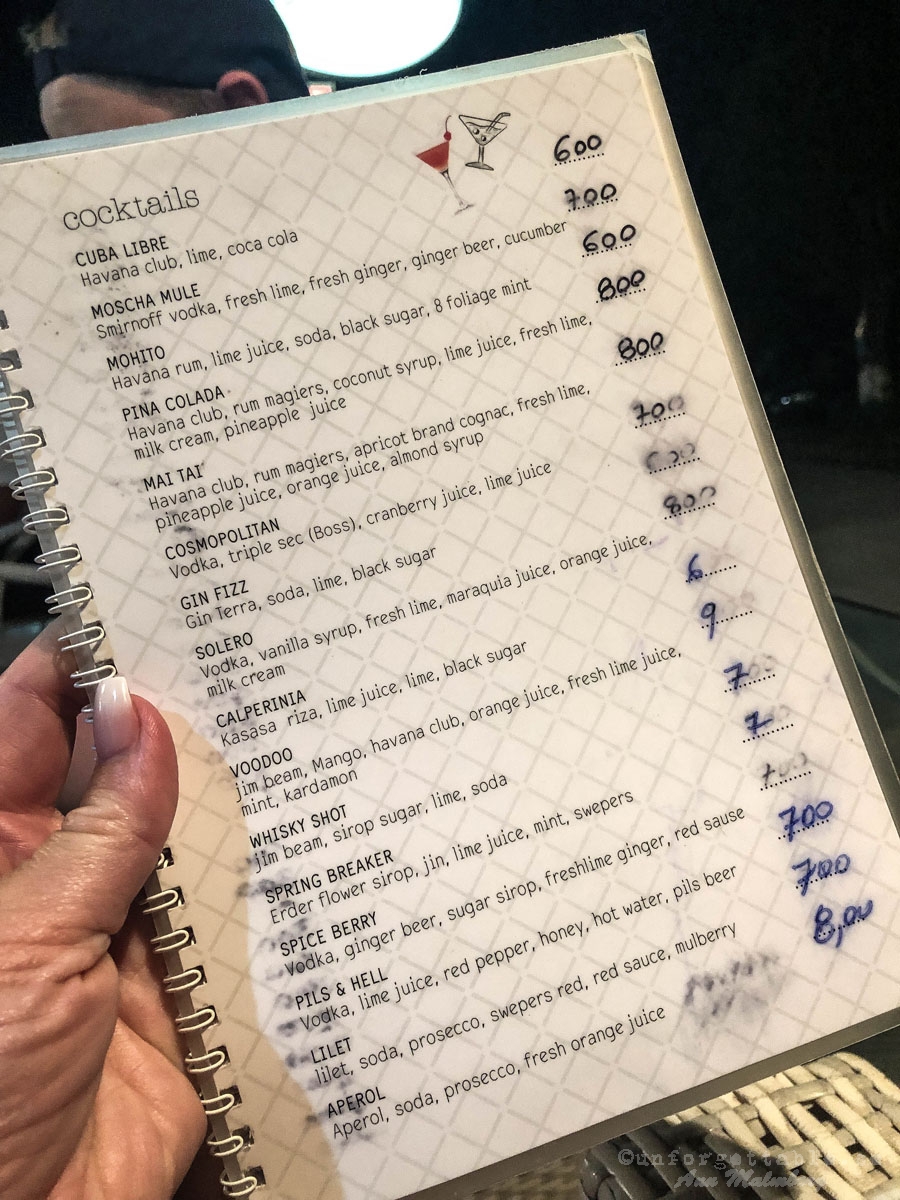 cocktails
CUBA LIBRE 600
Havana club, lime, coca cola
MOSCHA MULE 700
Smirnoff vodka, fresh lime, fresh ginger, ginger beer, cucumber
MOHITO 600
Havana rum, lime juice, soda, black sugar, 8 foliage mint
PINA COLADA 800
Havana club, rum magiers, coconut syrup, lime juice, fresh lime,
milk cream, pineapple juice
MAI TAI 800
Havana club, rum magiers, apricot brand cognac, fresh lime,
pineapple juice, orange juice, almond syrup
COSMOPOLITAN 700
Vodka, triple sec (Boss), cranberry juice, lime juice
GIN FIZZ
Gin Terra, soda, lime, black sugar
SOLERO 800
Vodka, vanilla syrup, fresh lime, maraquia juice, orange juice,
milk cream
CALPERINIA 6
Kasasa riza, lime juice, lime, black sugar
VOODOO 9
jim beam, Mango, havana club, orange juice, fresh lime juice,
mint, kardamon
WHISKY SHOT 700
jim beam, sirop sugar, lime, soda
SPRING BREAKER 7
Erder flower sirop, jin, lime juice, mint, swepers
SPICE BERRY 700
Vodka, ginger beer, sugar sirop, freshlime ginger, red sause
PILS & HELL 700
Vodka, lime juice, red pepper, honey, hot water, pils beer
LILET 700
lilet, soda, prosecco, swepers red, red sauce, mulberry
APEROL 8,00
Aperol, soda, prosecco, fresh orange juice